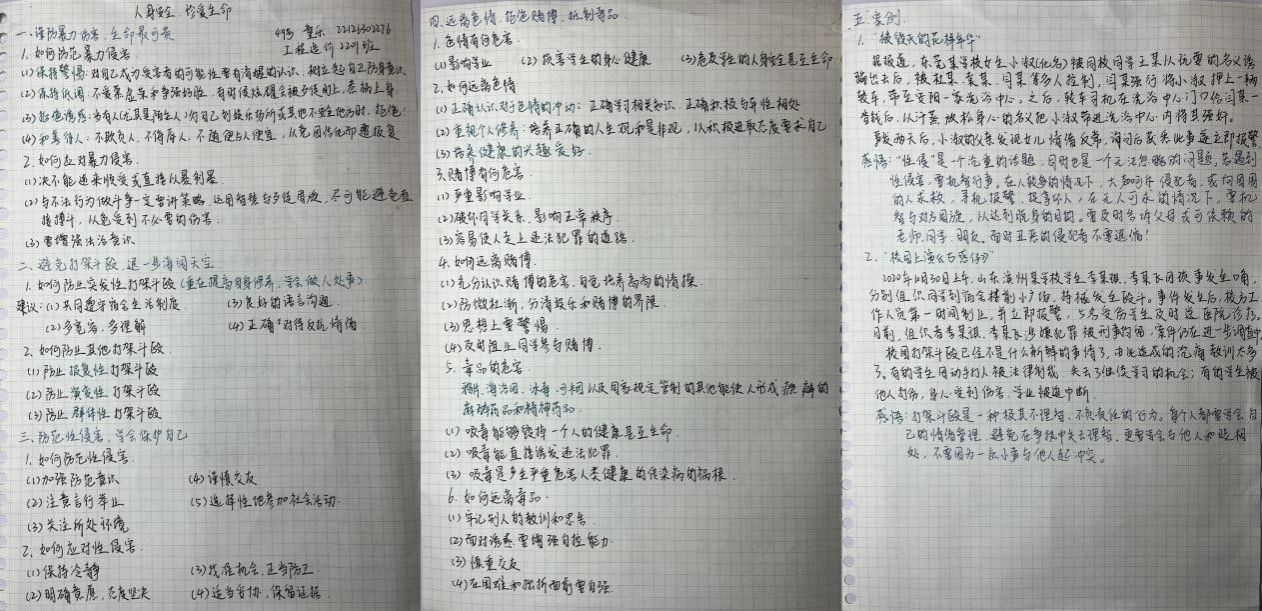 人身安全 珍爱生命
一、谨防暴力伤害,生命最可贵
49号 童乐 22126302276
工程造价2209班
1.如何防范暴力侵害
(1)保持警惕:对自己成为受害者的可能性要有清醒的认识,树立起自卫防身意识
(2)保持低调:不爱慕虚荣争强好胜,有时候炫耀会被歹徒盯上,惹祸上身.
(3)拒绝诱惑:当有人(尤其是陌生人)约自己到娱乐场所或其他不安全地方时,拒绝!
(4)和善待人:不欺负人,不得罪人,不随便占人便宜,以免因伤他却遭报复
2.如何应对暴力侵害.
(1)决不能逆来顺受或直接以暴制暴
(2)与不法行为做斗争一定要讲策略,运用智慧与歹徒周旋,尽可能避免直
接搏斗,以免受到不必要的伤害.
(3)要增强法治意识
二、避免打架斗殴,退一步海阔天空
1.如何防止突发性打架斗殴(重在提高自身修养,学会做人处事)
建议:(1)共同遵守宿舍生活制度 (3)良好的语言沟通
(2)多宽容,多理解 (4)正确对待反抗情绪
2.如何防止其他打架斗殴
(1)防止报复性打架斗殴
(2)防止演变性打架斗殴
(3)防止群体性打架斗殴
三、防范性侵害,学会保护自己
1.如何防范性侵害.
(1)加强防范意识 (4)谨慎交友
(2)注意言行举止 (5)选择性地参加社会活动.
(3)关注所处环境
2.如何应对性侵害.
(1)保持冷静 (3)找准机会,正当防卫
(2)明确意愿,态度坚决 (4)适当妥协,保留证据
四.远离色情,拒绝赌博,抵制毒品.
1.色情有何危害.
(1)影响学业 (2)损害学生的身心健康 (3)危及学生的人身安全甚至生命
2.如何远离色情
(1)正确认识对于色情的冲动:正确学习相关知识,正确积极与异性相处
(2)重视个人修养:培养正确的人生观和是非观,以积极进取态度要求自己
(3)培养健康的兴趣爱好.
3.赌博有何危害.
(1)严重影响学业.
(2)破坏同学关系,影响正常秩序
(3)容易使人走上违法犯罪的道路.
4.如何远离赌博.
(1)充分认识赌博的危害,自觉培养高尚的情操
(2)防微杜渐,分清娱乐和赌博的界限
(3)思想上要警惕
(4)及时阻止同学参与赌博.
5.毒品的危害
鸦片,海洛因,冰毒,可卡因以及国家规定管制的其他能使人形成瘾癖的
麻醉药品和精神药品.
(1)吸毒能够毁掉一个人的健康甚至生命.
(2)吸毒能直接诱发违法犯罪.
(3)吸毒是产生严重危害人类健康的传染病的祸根.
6.如何远离毒品.
(1)牢记别人的教训和忠告.
(2)面对诱惑要增强自控能力.
(3)慎重交友
(4)在困难和挫折面前要自强.
五.案例.
1."被毁灭的花样年华"
据报道,东莞某学校女生小淑(化名)被同校同学王某以玩耍的名义诱
骗出去后,被杜某、袁某、闫某等多人控制,闫某强行将小淑押上一辆
轿车,带至安阳一家洗浴中心。之后,轿车司机在洗浴中心门口给闫某一
些钱后,以汗蒸放松身心的名义把小淑带进洗浴中心内将其强奸。
事发两天后,小淑的父亲发现女儿情绪反常,询问后获悉此事连立即报警
感悟:"性侵"是一个沉重的话题,同时也是一个无法忽略的问题,若遇到
性侵害,要机智行事,在人较多的情况下,大声呵斥侵犯者,或向周围
的人求救,寻机报警,捉拿坏人,在无人可求的情况下,要机
智与对方周旋,以达到脱身的目的。要及时告诉父母或可依赖的
老师,同学,朋友,面对丑恶的侵犯者不要退缩!
2."校园上演《古惑仔》"
2020年4月30日上午,山东滨州某学校学生李某祺,李某飞因琐事发生口角,
分别组织同学到宿舍楼前小广场,持械发生殴斗。事件发生后,校方工
作人员第一时间制止,并立即报警,5名受伤学生及时送医院诊疗。
目前,组织者李某祺,李某飞涉嫌犯罪被刑事拘留,案件仍在进一步调查中
校园打架斗殴已经不是什么新鲜的事情了,由此造成的沉痛教训太多
了。有的学生因动手打人被法律制裁,失去了继续学习的机会;有的学生被
他人打伤,身心受到伤害,学业被迫中断.
感悟:打架斗殴是一种极其不理智,不负责任的行为。每个人都要学会自
己的情绪管理,避免在争执中失去理智,更要学会与他人和睦相
处,不要因为一点小事与他人起冲突。